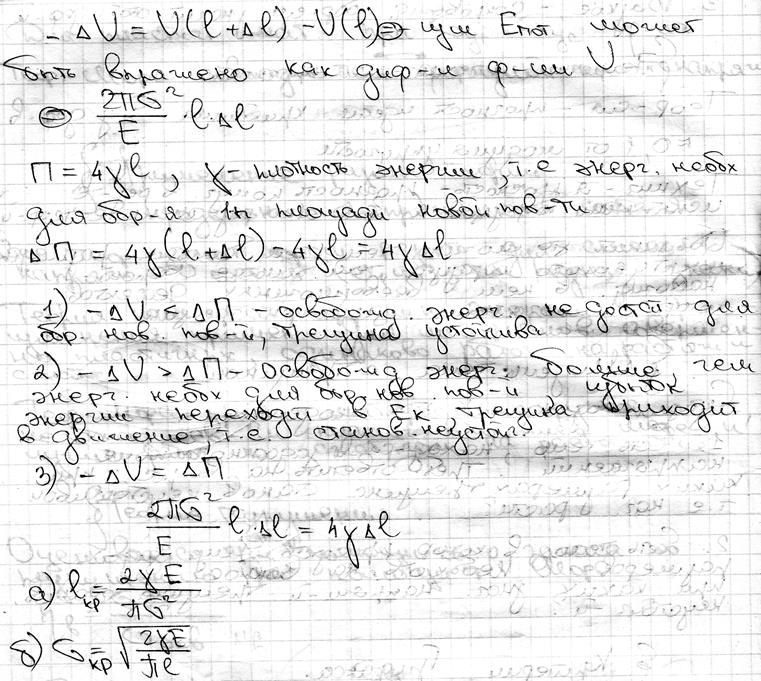 - ΔU = U(l+Δl) - U(l) ⊜ изм Eпот может
быть выражено как диф-л ф-ции U
⊜ 2πσ²/E · l·Δl
П = 4γl, γ - плотность энергии, т.е энерг. необх
для обр-я 1ы площади новой пов-ти
ΔП = 4γ(l+Δl) - 4γl = 4γΔl
1) -ΔU < ΔП - освобожд. энерг. не достат для
обр. нов. пов-и, трещина устойчива
2) -ΔU > ΔП - освобожд энерг. больше, чем
энерг. необх для обр нов. пов-и избыток
энергии переходит в Ек, трещина приходит
в движение, т.е. станов. неустойч.
3) -ΔU = ΔП
2πσ²/E l·Δl = 4γΔl
а) lкр = 2γE/πσ²
б) σкр = √(2γE/πl)